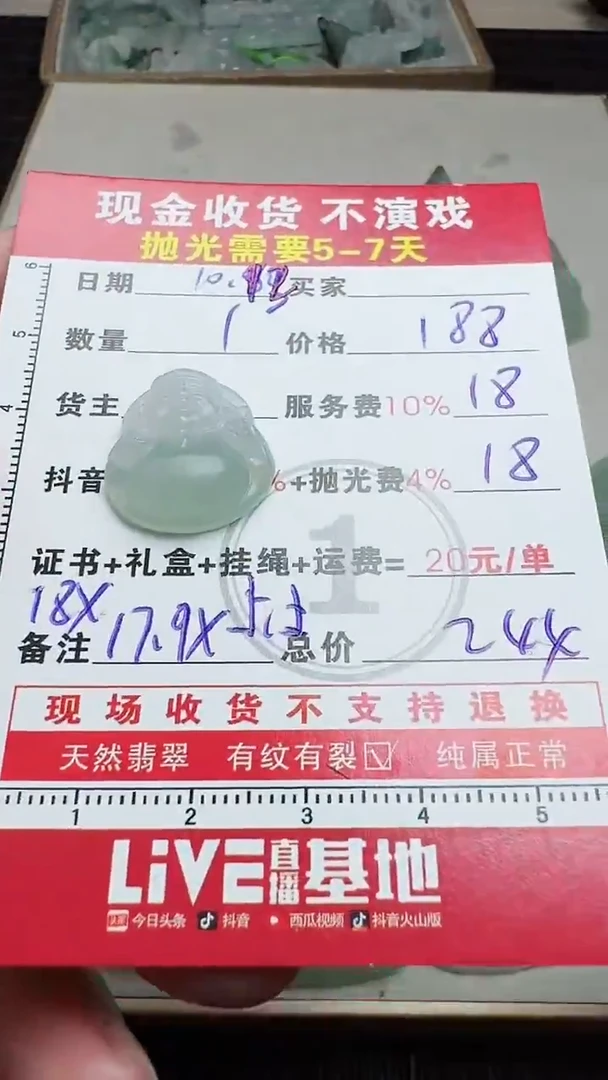 现金收货 不演戏
抛光需要5-7天
日期 10. 买家
数量 1 价格 188
货主 服务费10% 18
抖音 %+抛光费4% 18
1
证书+礼盒+挂绳+运费= 20元/单
18X
备注 17.9X 总价 244
现场收货不支持退换
天然翡翠 有纹有裂☑ 纯属正常
1 2 3 4 5
LiVE直播基地
今日头条 抖音 西瓜视频 抖音火山版
4 5 6